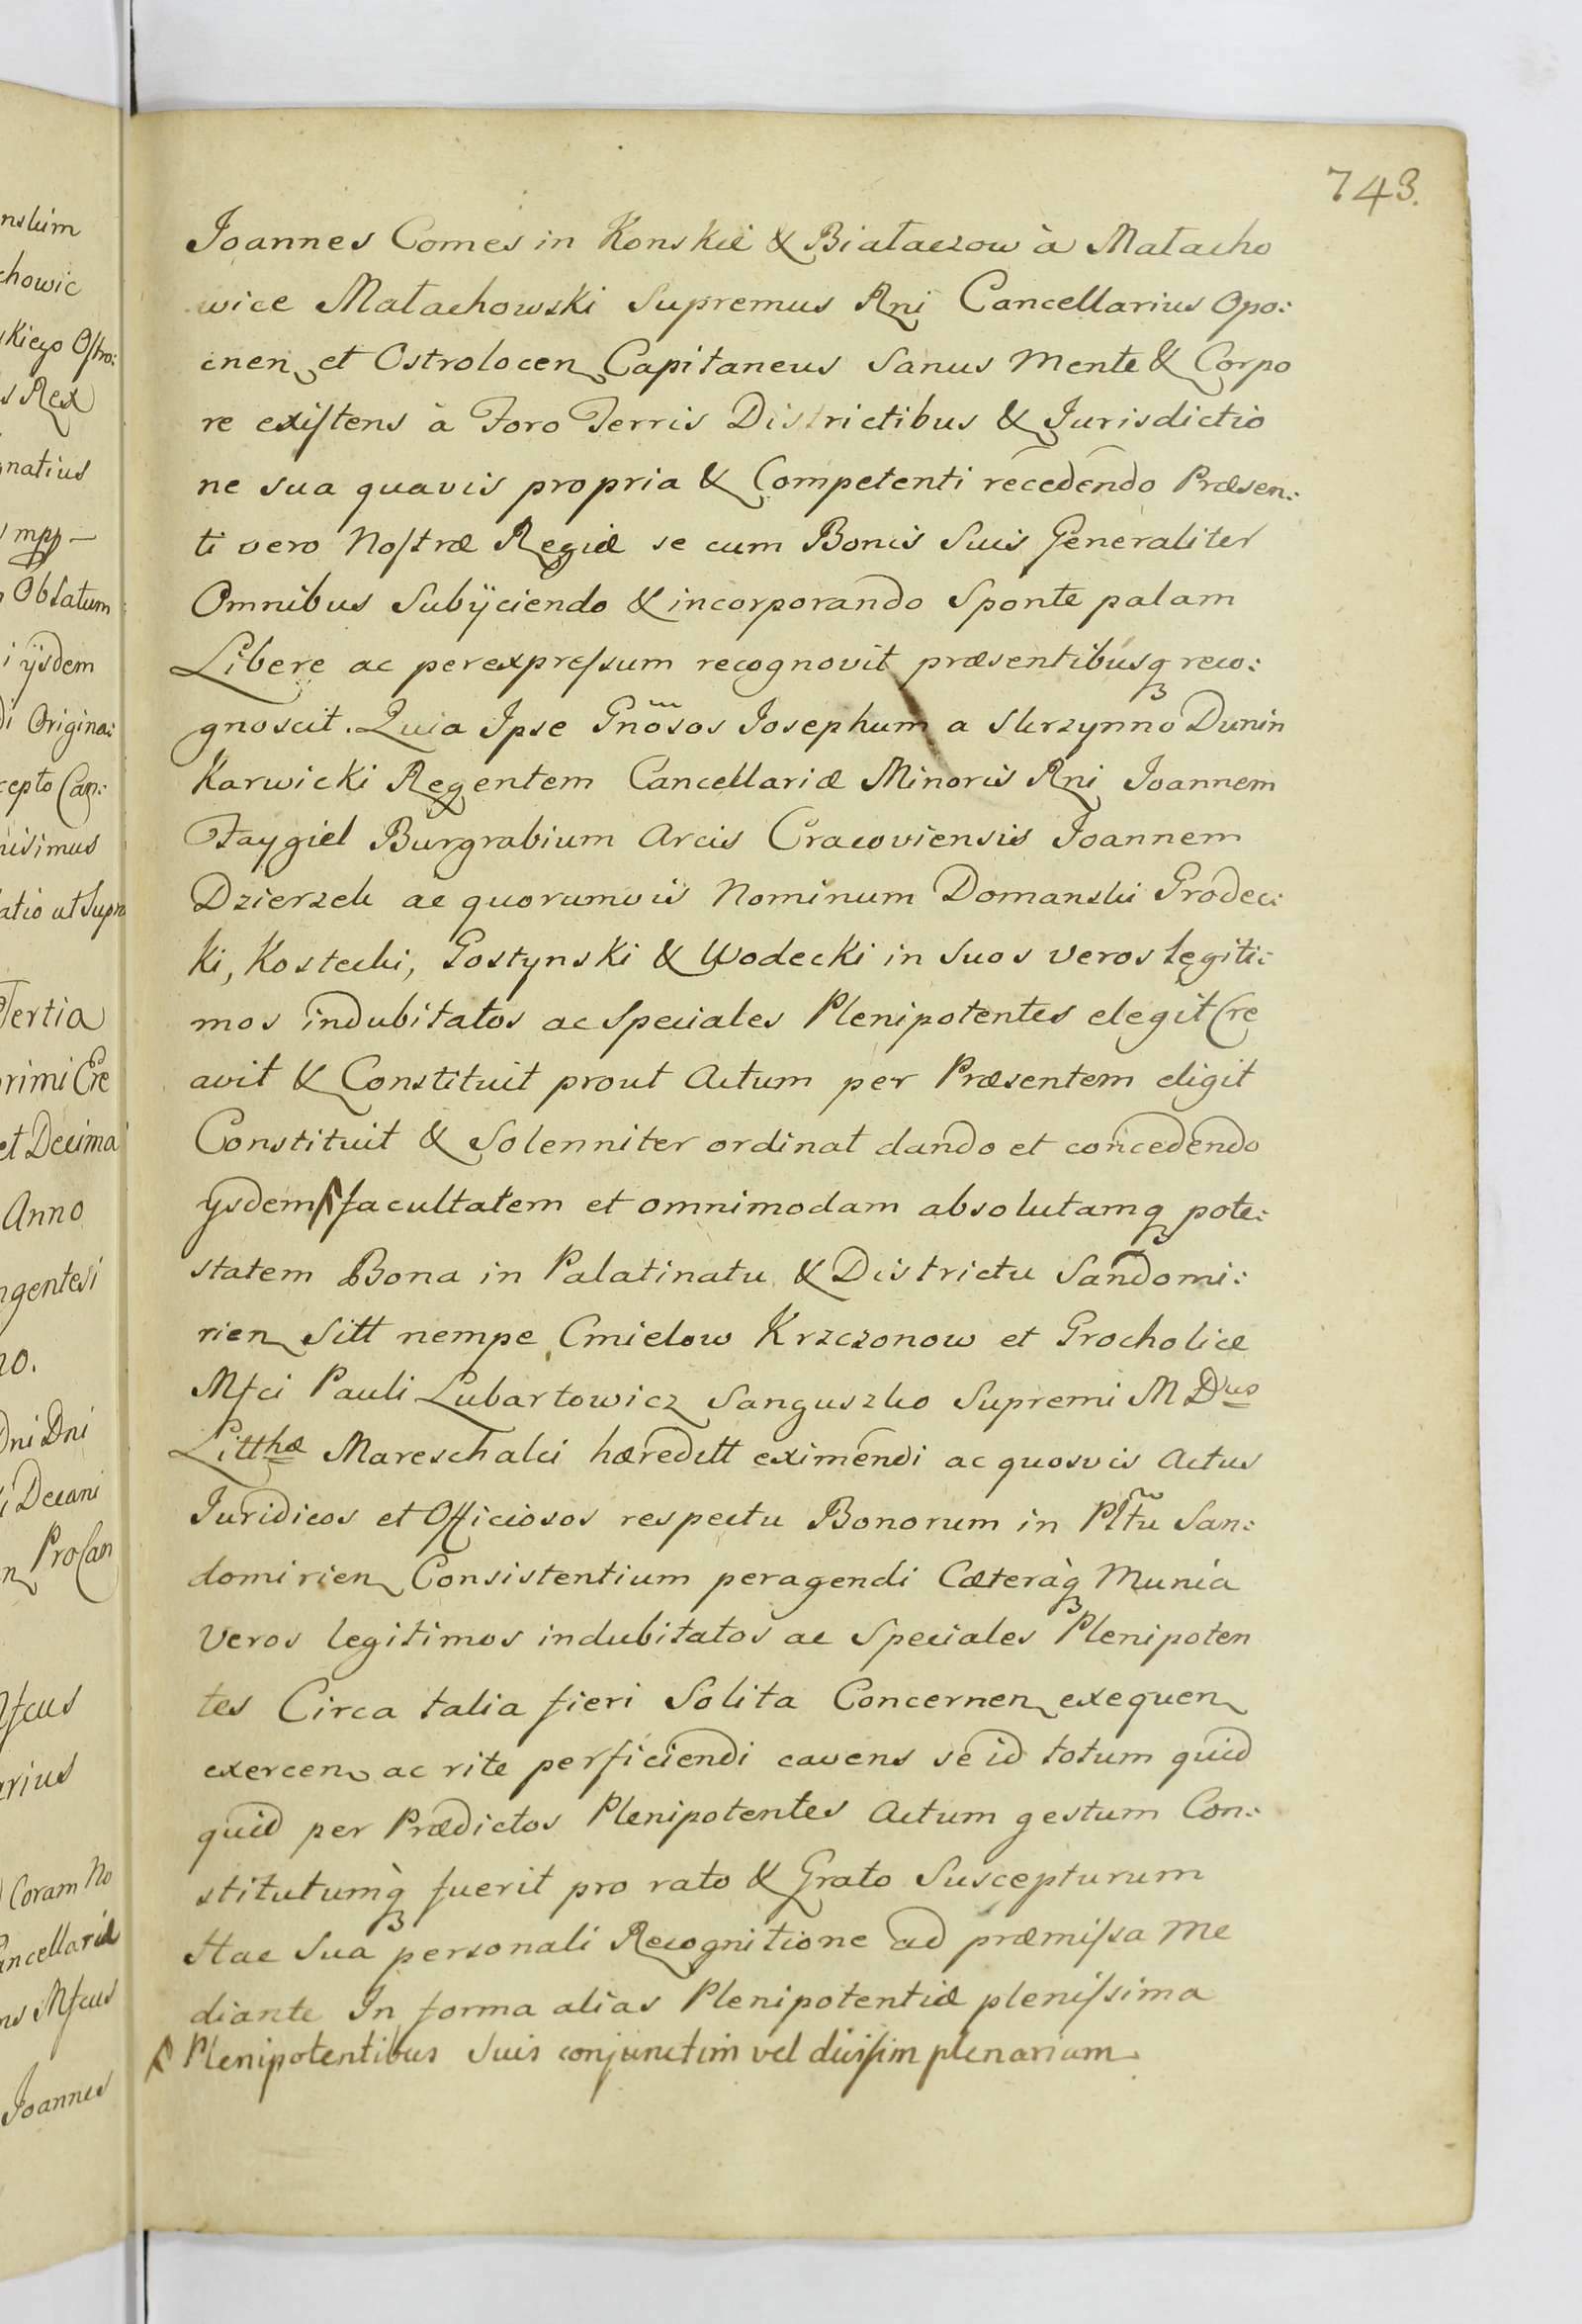 743.
Joannes Comes in Konskie & Białaczow à Małacho
wice Małachowski Supremus Rni Cancellarius Opo:
cnen et Ostrolocen Capitaneus Sanus Mente & Corpo
re existens à Foro Terris Districtibus & Jurisdictio
ne sua quavis propria & Competenti recedendo Præsen:
ti vero Nostræ Regiæ se cum Bonis Suis Generaliter
Omnibus Subÿciendo & incorporando Sponte palam
Libere ac per expressum recognovit præsentibusq reco:
gnoscit. Quia Ipse Gnõsos Josephum a Skrzynno Dunin
Karwicki Regentem Cancellariæ Minoris Rni Joannem
Faygiel Burgrabium Arcis Cracoviensis Joannem
Dzierzek ac quorumvis Nominum Domanski Grodec:
ki, Kostecki, Gostynski & Wodecki in Suos Veros Legiti:
mos indubitatos ac Speciales Plenipotentes elegit Cre
avit & Constituit prout Actum per Præsentem eligit
Constituit & Solenniter ordinat dando et concedendo
ysdem facultatem et omnimodam absolutamq pote:
statem Bona in Palatinatu & Districtu Sandomi:
rien Sitt nempe Cmielow Krzczonow et Grocholice
Mfci Pauli Lubartowicz Sanguszko Supremi M Dus
Litthæ Mareschalci hæreditt eximendi ac quosvis Actus
Juridicos et Officiosos respectu Bonorum in Pltu San:
domirien Consistentium peragendi Cæteràq Munia
Veros legitimos indubitatos ac Speciales Plenipoten
tes Circa talia fieri Solita Concernen exequen
exercen ac rite perficiendi cavens se id totum quid
quid per Prædictos Plenipotentes Actum gestum Con:
stitutumq̀ fuerit pro rato & Grato Suscepturum
Hac Sua personali Recognitione ad præmissa Me
diante In forma alias Plenipotentiæ plenissima
Plenipotentibus Suis conjunctim vel divisim plenariam
nskim
chowic
skiego Ostro:
s Rex
gnatius
mpp
Oblatum
i ÿsdem
di Origina:
cepto Can:
nisimus
atio ut Supra
Tertia
primi Ere
et Decima
Anno
ngentesi
no.
Dni Dni
i Decani
n ProCan
Mfcus
arius
Coram No
ancellariæ
ns Mfcus
Joannes